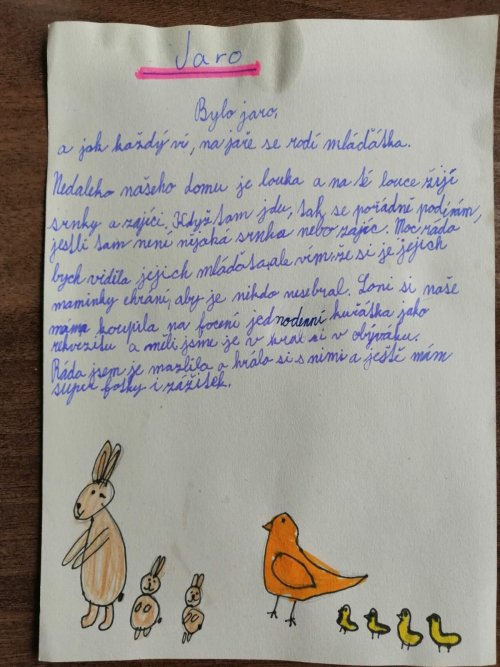 Jaro
Bylo jaro,
a jak každý ví, na jaře se rodí mláďátka.
Nedaleko našeho domu je louka a na té louce žijí
srnky a zajíci. Když tam jdu, tak se pořádně podívám,
jestli tam není nějaká srnka nebo zajíc. Moc ráda
bych viděla jejich mláďata, ale vím, že si je jejich
maminky chrání, aby je nikdo nesebral. Loni si naše
máma koupila na focení jednodenní kuřátka jako
rekvizitu a měli jsme je v krabici v obýváku.
Ráda jsem je mazlila a hrála si s nimi a ještě mám
super fotky i zážitek.